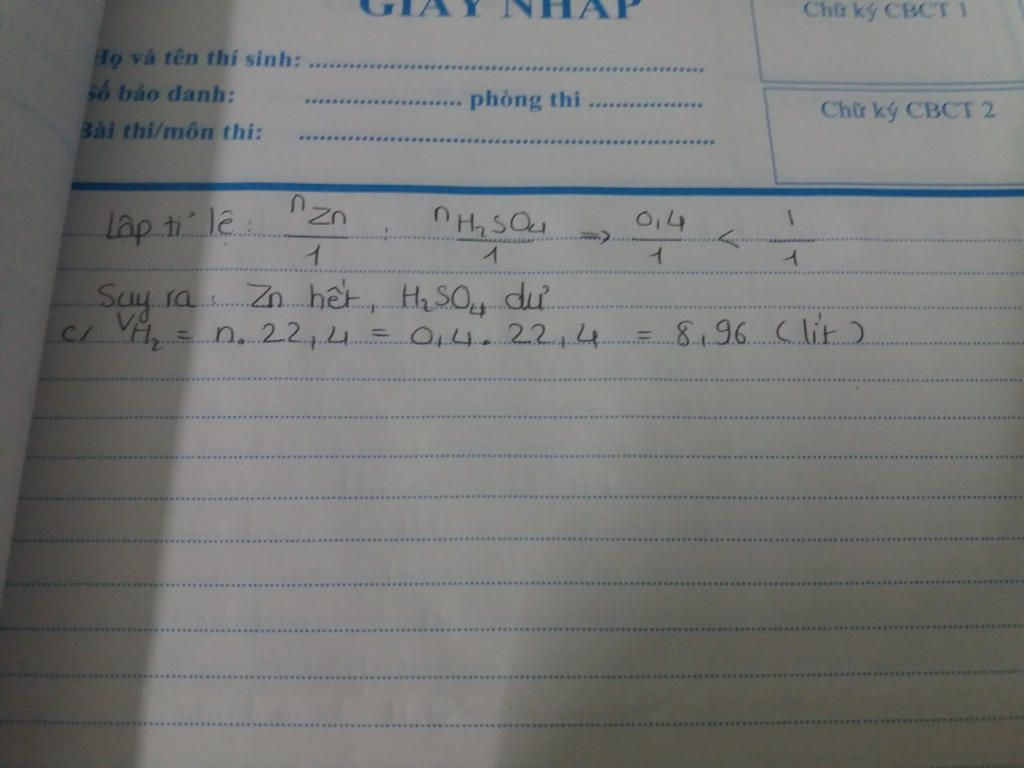 GIẤY NHÁP
Chữ ký CBCT 1
Họ và tên thí sinh: ..........
Số báo danh: .......... phòng thi ..........
Bài thi/môn thi: ..........
Chữ ký CBCT 2
Lập tỉ lệ: nZn/1 : nH₂SO₄/1 => 0,4/1 < 1/1
Suy ra: Zn hết, H₂SO₄ dư
c/ VH₂ = n. 22,4 = 0,4. 22,4 = 8,96 (lít)